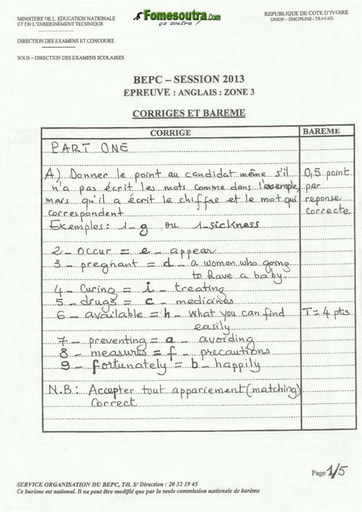 MINISTERE DE L'EDUCATION NATIONALE
ET DE L'ENSEIGNEMENT TECHNIQUE
Fomesoutra.com
ça soutra !
REPUBLIQUE DE COTE D'IVOIRE
UNION – DISCIPLINE - TRAVAIL
DIRECTION DES EXAMENS ET CONCOURS
SOUS – DIRECTION DES EXAMENS SCOLAIRES
BEPC – SESSION 2013
EPREUVE : ANGLAIS : ZONE 3
CORRIGES ET BAREME
CORRIGE
BAREME
PART ONE
A) Donner le point au candidat même s'il
n'a pas écrit les mots comme dans l'exemple,
mais qu'il a écrit le chiffre et le mot qui
correspondent
0,5 point
par
reponse
correcte
Exemples: 1-g ou 1-sickness
2 - Occur = e - appear
3 - pregnant = d - a woman who going
to have a baby
4 - Curing = i - treating
5 - drugs = c - medicines
6 - available = h - what you can find
easily
T = 4 pts
7 - preventing = a - avoiding
8 - measures = f - precautions
9 - fortunately = b - happily
N.B: Accepter tout appariement (matching)
correct
Page 1/5
SERVICE ORGANISATION DU BEPC, Tél. S/ Direction : 20 32 19 45
Ce barème est national. Il ne peut être modifié que par la seule commission nationale de barème